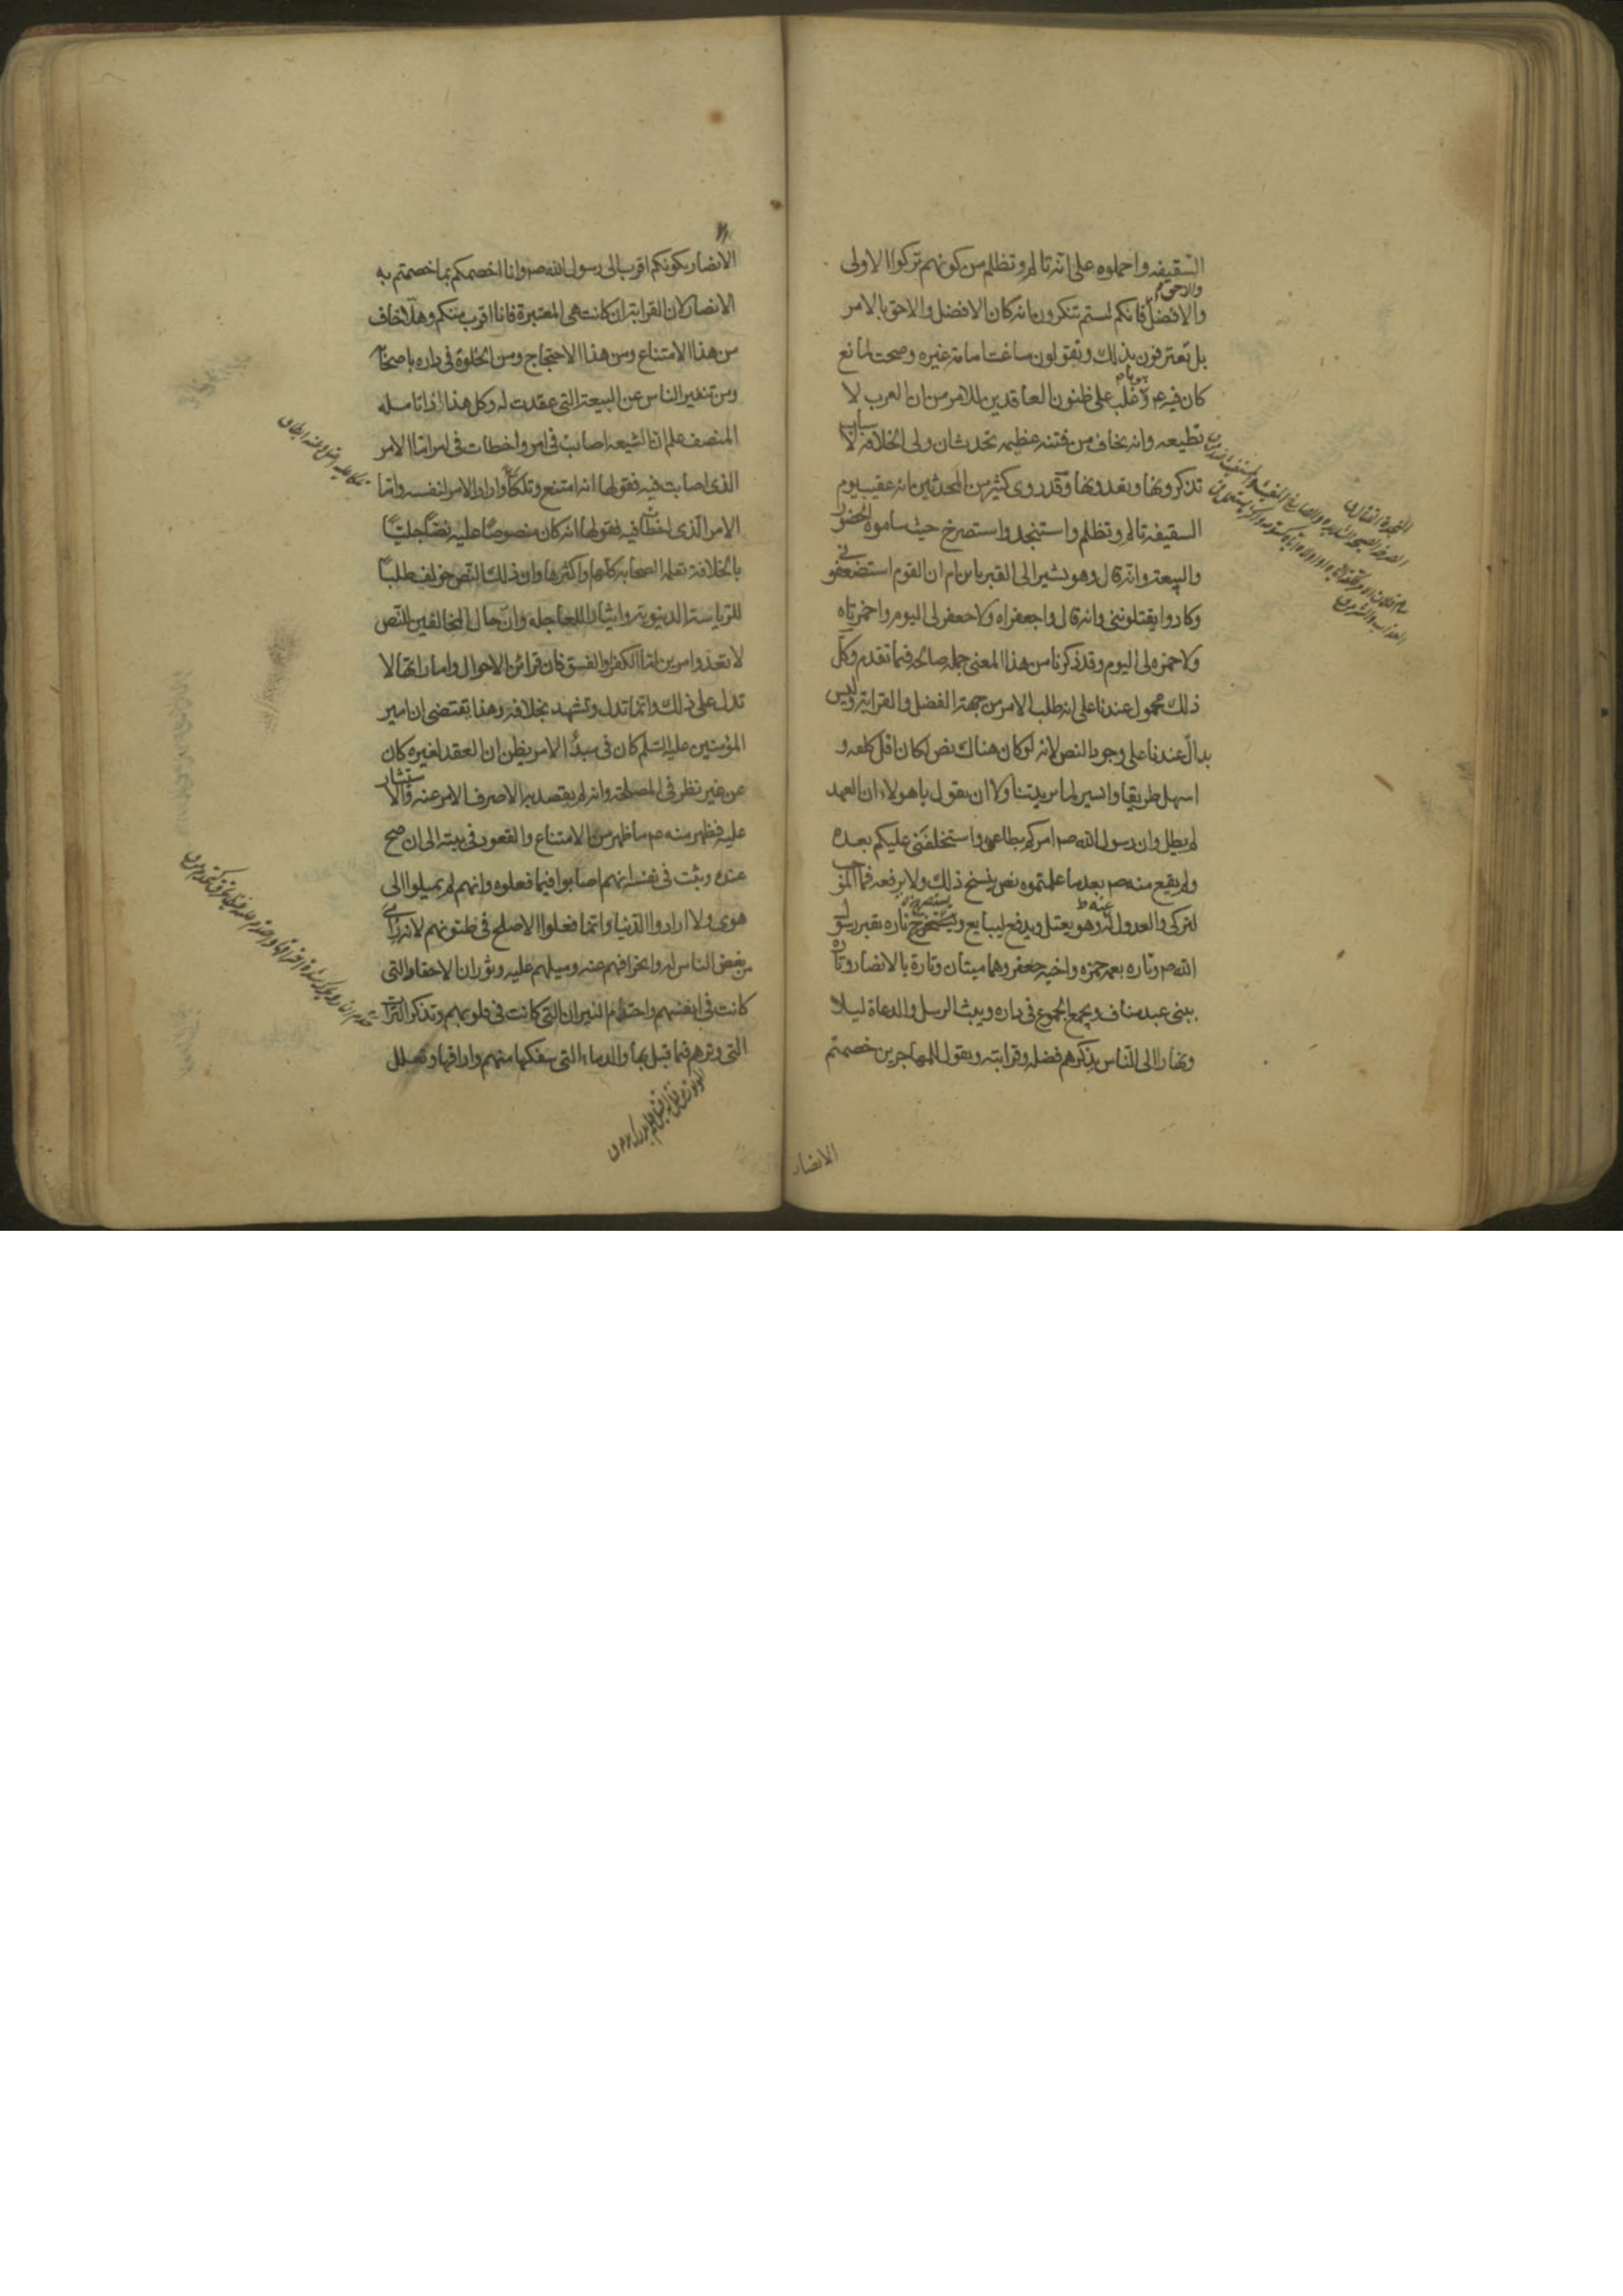 السقيفه واحملوه على انه تالم وتظلم من كونهم تركوا الاولى
والافضل فانكم لستم تنكرون بانه كان الافضل والاحق بالامر
بل تعترفون بذلك وتقولون ساغت امامة غيره وصحت لمانع
كان فيه ع وهو ما غلب على ظنون العاقدين للامر من ان العرب لا
تطيعه وانه يخاف من فتنه عظيمه تحدث ان ولى الخلافه لاسباب
تذكرونها وتعدونها وقد روى كثير من المحدثين بانه عقيب يوم
السقيفه تالم وتظلم واستنجد واستصرخ حيث ساموه الحضور
والبيعة وانه قال وهو يشير الى القبر يا بن ام ان القوم استضعفونى
وكادوا يقتلوننى وانه قال واجعفراه ولا جعفر لى اليوم واحمزتاه
ولا حمزه لى اليوم وقد ذكرنا من هذا المعنى جمله صالحه فيما تقدم وكل
ذلك محمول عندنا على انه طلب الامر من جهة الفضل والقرابه وليس
بدال عندنا على وجود النص لانه لو كان هناك نص لكان اقل كلفه و
اسهل طريقا وايسر لما يريد تناولا ان يقول يا هولاء ان العهد
لم يطل وان رسول الله ص امركم بطاعتى واستخلفنى عليكم بعده
ولم يقع منه ص بعد ما علمتموه نص ينسخ ذلك ولا يرفعه فما الموجب
لتركى والعدول عنى وهو يعتل ويدفع ليبايع ويستصرخ تاره بقبر رسول
الله ص وتاره بعمه حمزه واخيه جعفر وهما ميتان وتارة بالانصار وتاره
ببنى عبد مناف ويجمع الجموع فى داره ويبث الرسل والدعاة ليلا
ونهارا الى الناس يذكرهم فضله وقرابته ويقول للمهاجرين خصمتم
الانصار
الانصار بكونكم اقرب الى رسول الله ص وانا اخصمكم بما خصمتم به
الانصار لان القرابة ان كانت هى المعتبرة فانا اقرب منكم وهلا خاف
من هذا الامتناع ومن هذا الاحتجاج ومن الخلوة فى داره باصحابه
ومن تنفير الناس عن البيعة التى عقدت له وكل هذا اذا تامله
المنصف علم ان الشيعه اصابت فى امر واخطات فى امر اما الامر
الذى اصابت فيه فقولها انه امتنع وتلكأ واراد الامر لنفسه واما
الامر الذى اخطات فيه فقولها انه كان منصوصا عليه نصا جليا
بالخلافة تعلمه الصحابه كلها او اكثرها وان ذلك النص خولف طلبا
للرياسة الدنيوية وايثارا للعاجله وان حال المخالفين للنص
لا تعدوا امرين اما الكفر او الفسق فان قرائن الاحوال واماراتها لا
تدل على ذلك وانما تدل وتشهد بخلافه وهذا يقتضى ان امير
المؤمنين عليه السلم كان فى مبدأ الامر يظن ان العقد لغيره كان
عن غير نظر فى المصلحة وانه لم يقصد به الا صرف الامر عنه والاستيثار
عليه فظهر منه ص ما ظهر من الامتناع والقعود فى بيته الى ان صح
عنده وثبت فى نفسه انهم اصابوا فيما فعلوه وانهم لم يميلوا الى
هوى ولا ارادوا الدنيا وانما فعلوا الاصلح فى ظنونهم لانه رأى
من بغض الناس له وانحرافهم عنه وميلهم عليه وثوران الاحقاد التى
كانت فى انفسهم واحتدام النيران التى كانت فى قلوبهم وتذكر الترات
التى وترهم فيما قبل بها والدماء التى سفكها منهم واراقها وتعلل